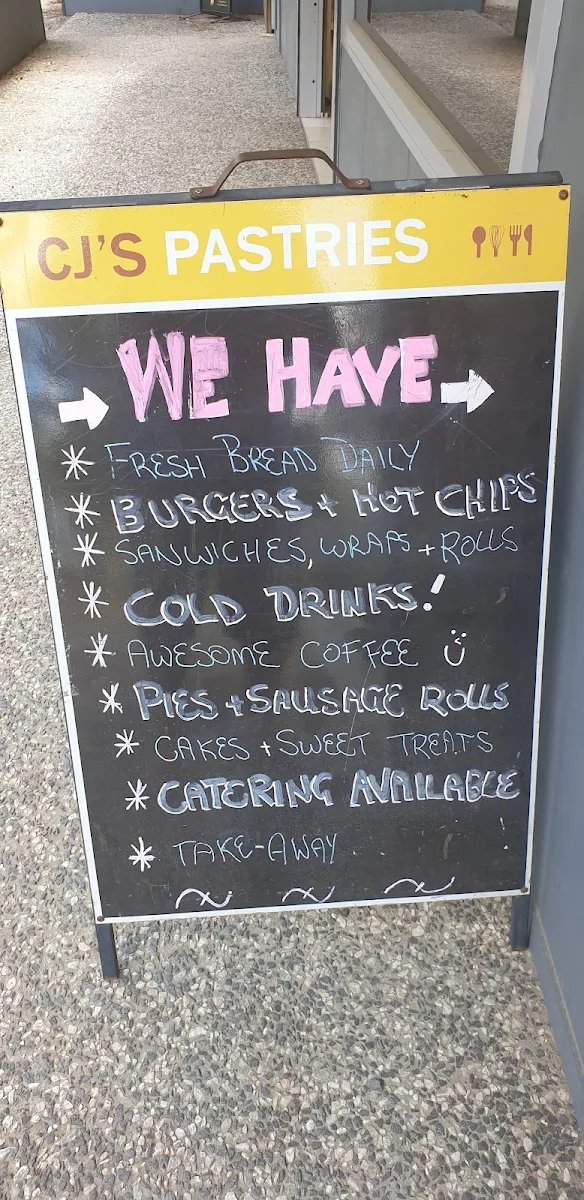 CJ'S PASTRIES
WE HAVE
* FRESH BREAD DAILY
* BURGERS + HOT CHIPS
* SANWICHES, WRAPS + ROLLS
* COLD DRINKS!
* AWESOME COFFEE
* PIES + SAUSAGE ROLLS
* CAKES + SWEET TREATS
* CATERING AVAILABLE!
* TAKE-AWAY